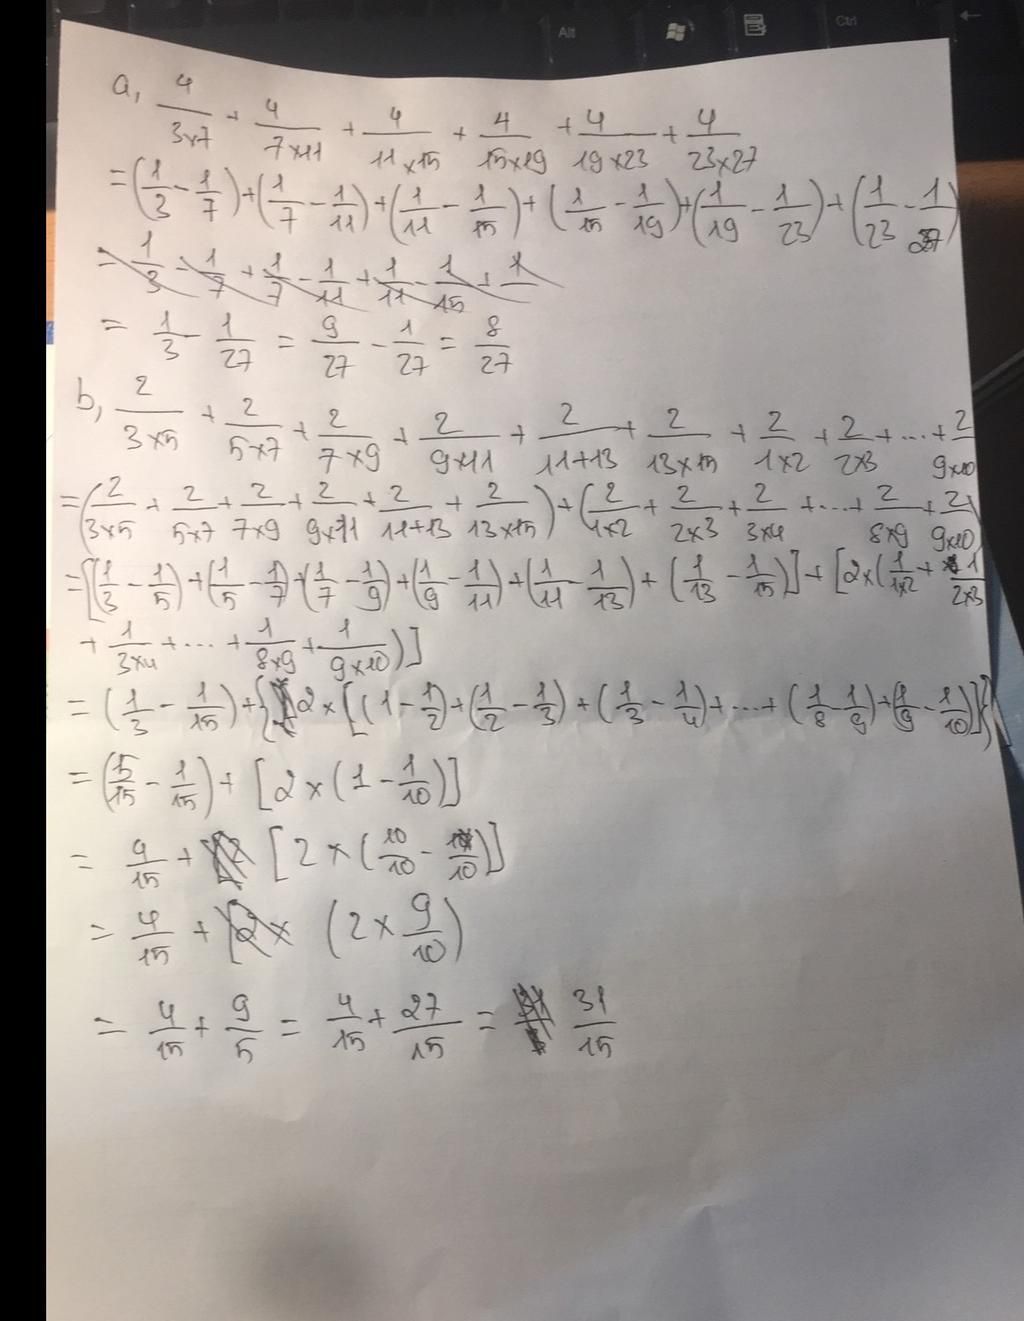 Alt Ctrl
a, 4/3x7 + 4/7x11 + 4/11x15 + 4/15x19 + 4/19x23 + 4/23x27
= (1/3 - 1/7) + (1/7 - 1/11) + (1/11 - 1/15) + (1/15 - 1/19) + (1/19 - 1/23) + (1/23 - 1/27)
= 1/3 - 1/7 + 1/7 - 1/11 + 1/11 - 1/15 + 1/
= 1/3 - 1/27 = 9/27 - 1/27 = 8/27
b, 2/3x5 + 2/5x7 + 2/7x9 + 2/9x11 + 2/11+13 + 2/13x15 + 2/1x2 + 2/2x3 + ... + 2/9x10
= (2/3x5 + 2/5x7 + 2/7x9 + 2/9x11 + 2/11+13 + 2/13x15) + (2/1x2 + 2/2x3 + 2/3x4 + ... + 2/8x9 + 2/9x10)
= [(1/3 - 1/5) + (1/5 - 1/7) + (1/7 - 1/9) + (1/9 - 1/11) + (1/11 - 1/13) + (1/13 - 1/15)] + [2x(1/1x2 + 1/2x3
+ 1/3x4 + ... + 1/8x9 + 1/9x10)]
= (1/3 - 1/15) + {2x[(1 - 1/2) + (1/2 - 1/3) + (1/3 - 1/4) + ... + (1/8 - 1/9) + (1/9 - 1/10)]}
= (5/15 - 1/15) + [2x(1 - 1/10)]
= 4/15 + [2x(10/10 - 1/10)]
= 4/15 + (2x 9/10)
= 4/15 + 9/5 = 4/15 + 27/15 = 31/15